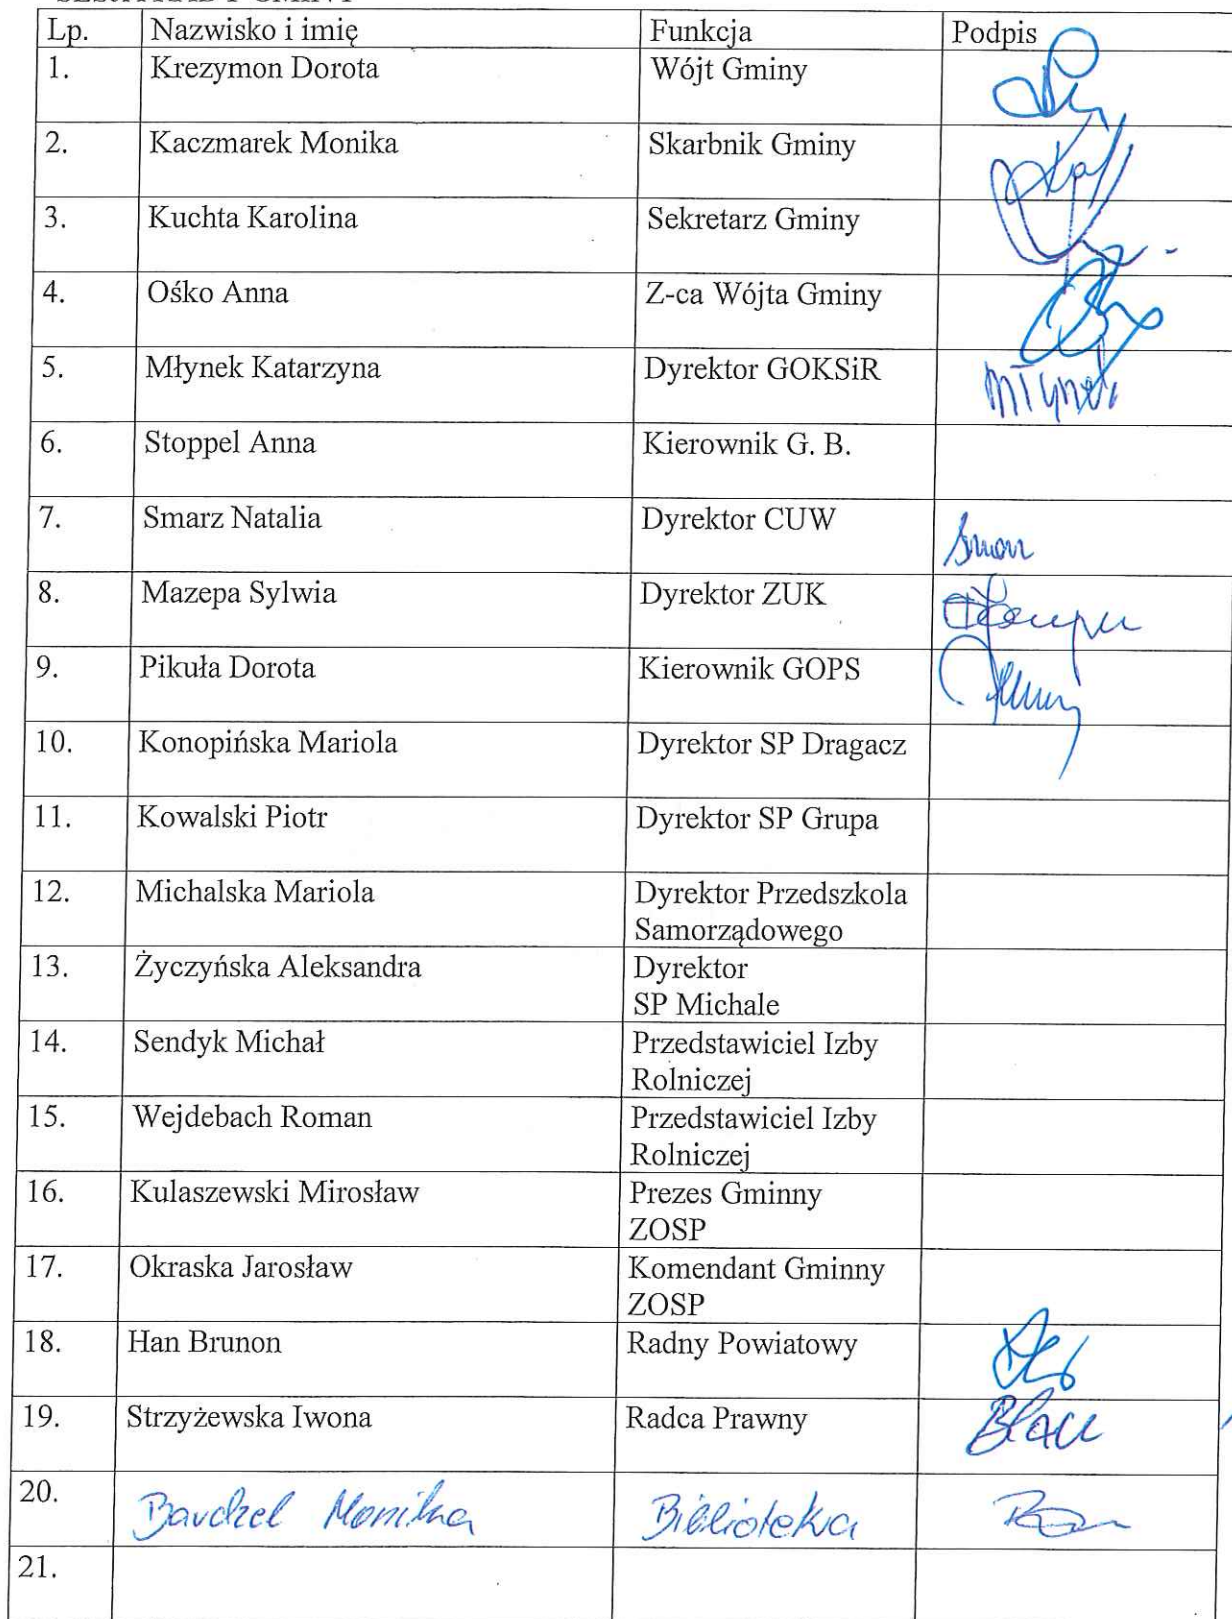 Lp. Nazwisko i imię Funkcja Podpis
1. Krezymon Dorota Wójt Gminy
2. Kaczmarek Monika Skarbnik Gminy
3. Kuchta Karolina Sekretarz Gminy
4. Ośko Anna Z-ca Wójta Gminy
5. Młynek Katarzyna Dyrektor GOKSiR Młynek
6. Stoppel Anna Kierownik G. B.
7. Smarz Natalia Dyrektor CUW
8. Mazepa Sylwia Dyrektor ZUK
9. Pikuła Dorota Kierownik GOPS
10. Konopińska Mariola Dyrektor SP Dragacz
11. Kowalski Piotr Dyrektor SP Grupa
12. Michalska Mariola Dyrektor Przedszkola
Samorządowego
13. Życzyńska Aleksandra Dyrektor
SP Michale
14. Sendyk Michał Przedstawiciel Izby
Rolniczej
15. Wejdebach Roman Przedstawiciel Izby
Rolniczej
16. Kulaszewski Mirosław Prezes Gminny
ZOSP
17. Okraska Jarosław Komendant Gminny
ZOSP
18. Han Brunon Radny Powiatowy
19. Strzyżewska Iwona Radca Prawny
20. Monika Biblioteka
21.